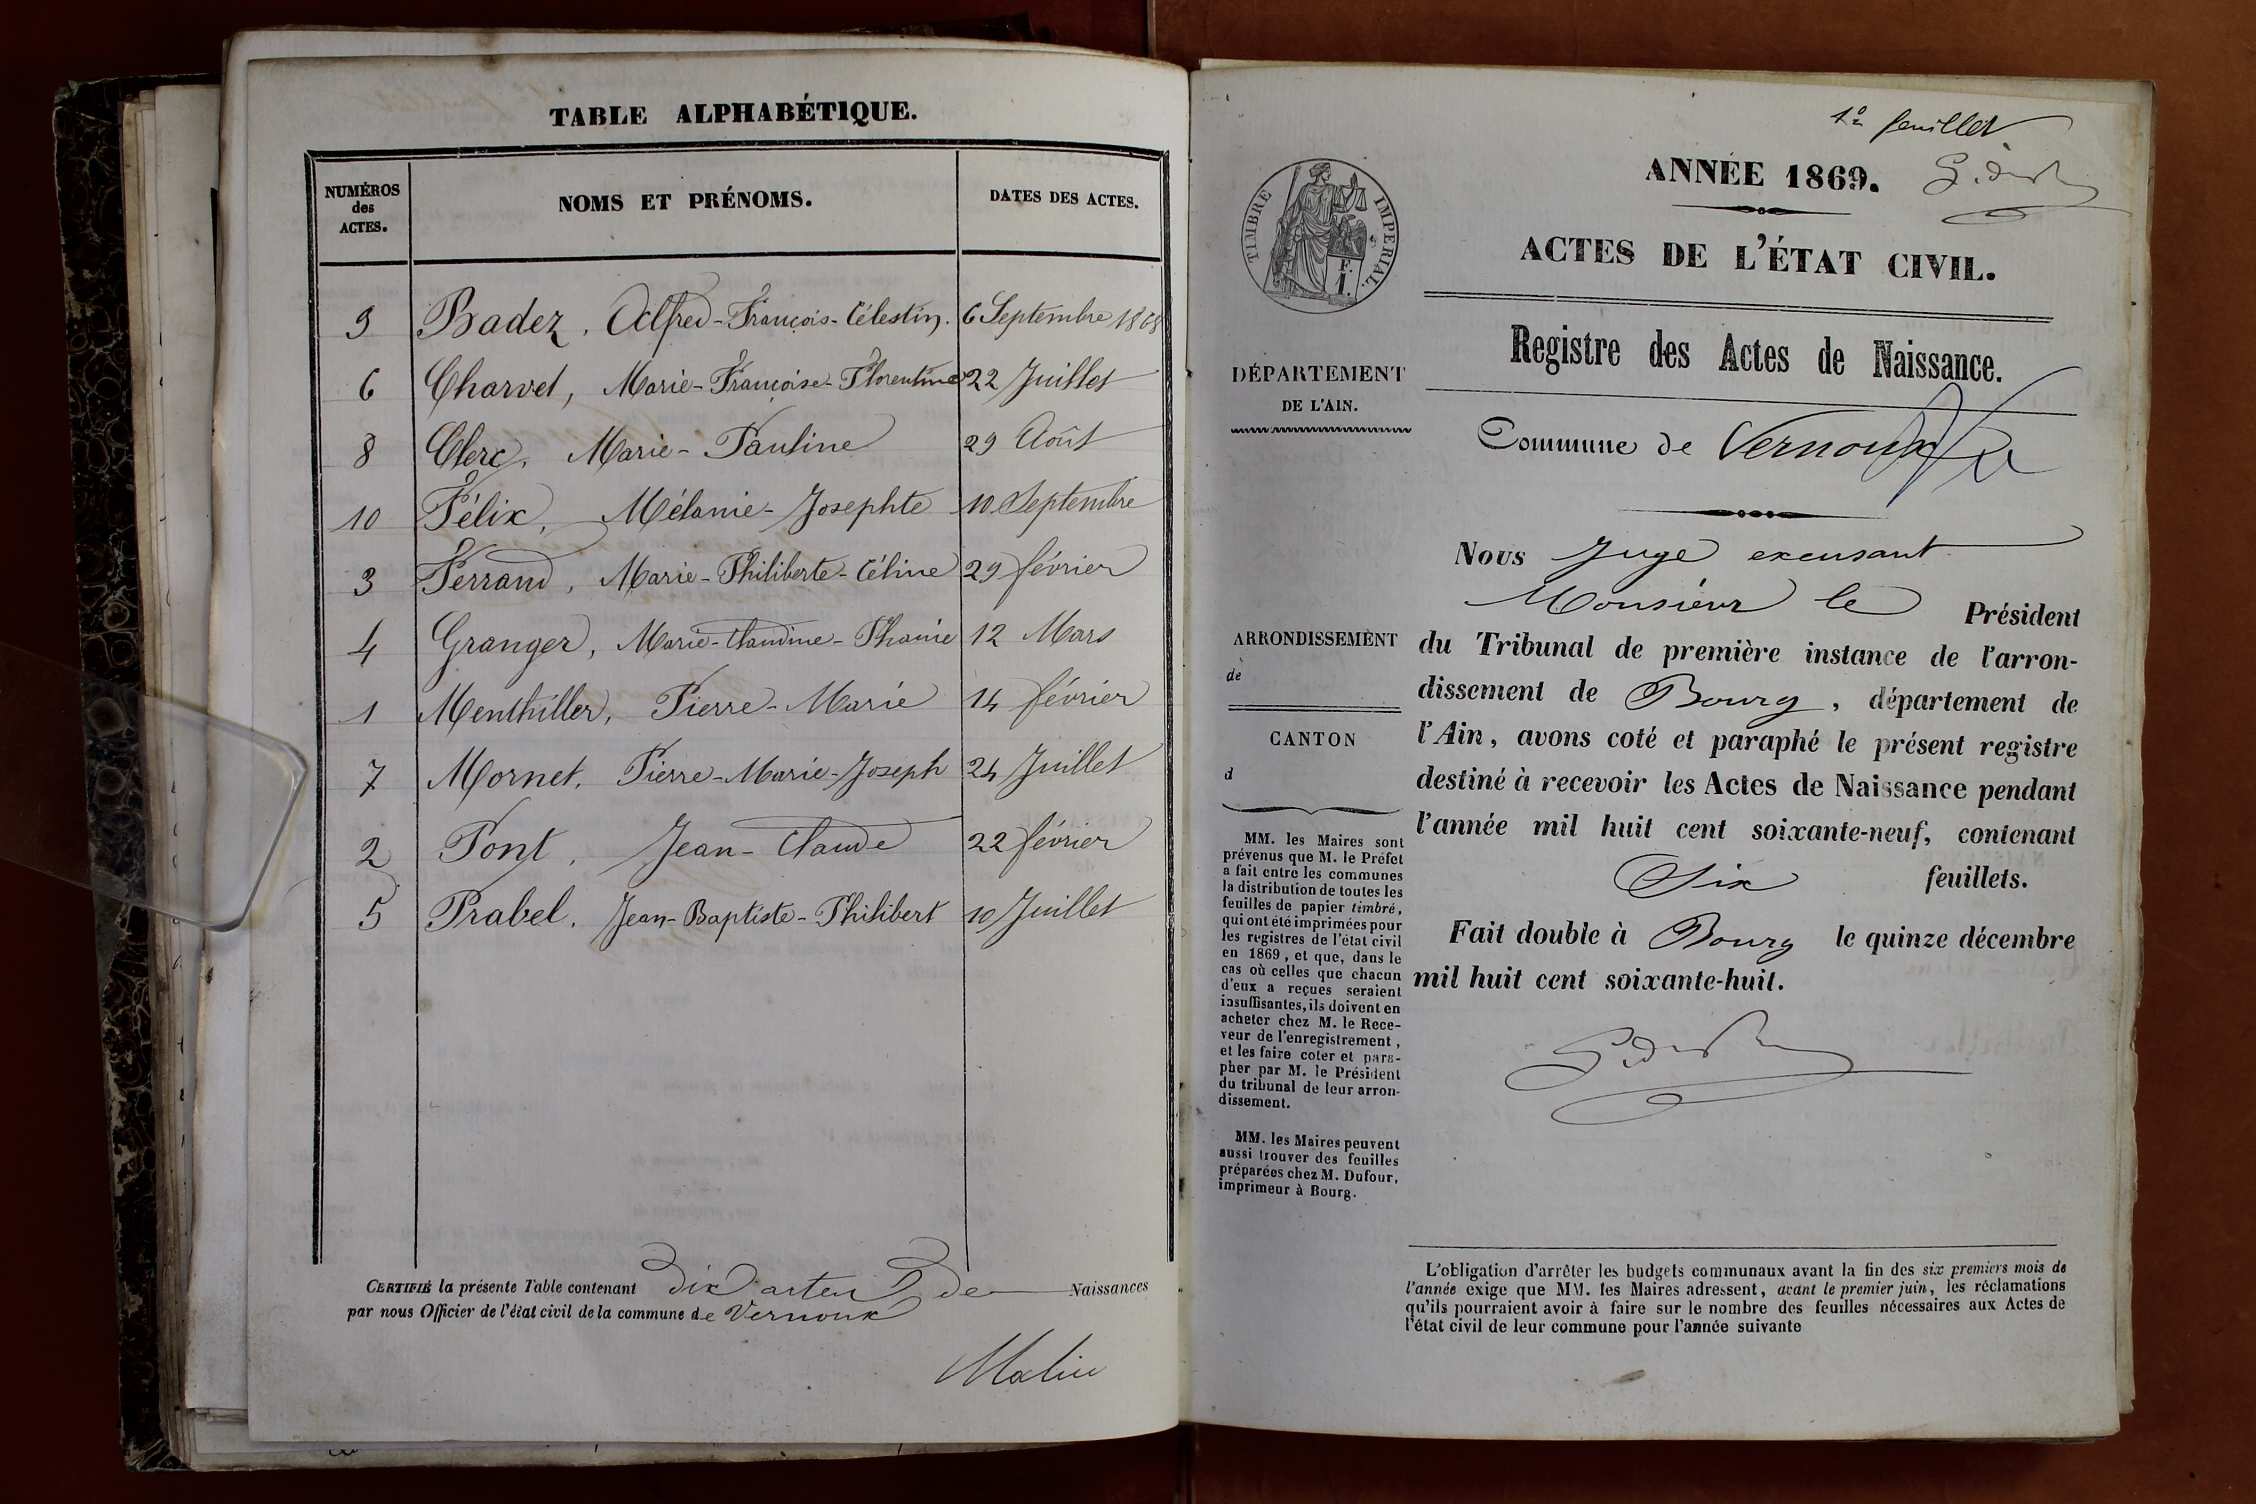 TABLE ALPHABÉTIQUE.
NUMÉROS des ACTES. NOMS ET PRÉNOMS. DATES DES ACTES.
9 Badez, Alfred-François-Célestin. 6 Septembre 1868
6 Charvet, Marie-Françoise-Florentine 22 Juillet
8 Clerc, Marie-Pauline 29 Août
10 Félix, Mélanie-Josephte 10 Septembre
3 Ferrand, Marie-Philiberte-Céline 29 février
4 Granger, Marie-Claudine-Phanie 12 Mars
1 Menthiller, Pierre-Marie 14 février
7 Mornet, Pierre-Marie-Joseph 24 Juillet
2 Pont, Jean-Claude 22 février
5 Prabel, Jean-Baptiste-Philibert 10 Juillet
CERTIFIÉ la présente Table contenant dix actes de Naissances
par nous Officier de l'état civil de la commune de Vernoux
1er feuillet
ANNÉE 1869.
ACTES DE L'ÉTAT CIVIL.
TIMBRE IMPERIAL.
F.
1.
Registre des Actes de Naissance.
DÉPARTEMENT
DE L'AIN.
Commune de Vernoux
Nous Juge excusant
Monsieur le Président
ARRONDISSEMENT
de
CANTON
d
du Tribunal de première instance de l'arron-
dissement de Bourg, département de
l'Ain, avons coté et paraphé le présent registre
destiné à recevoir les Actes de Naissance pendant
l'année mil huit cent soixante-neuf, contenant
Six feuillets.
Fait double à Bourg le quinze décembre
mil huit cent soixante-huit.
MM. les Maires sont
prévenus que M. le Préfet
a fait entre les communes
la distribution de toutes les
feuilles de papier timbré,
qui ont été imprimées pour
les registres de l'état civil
en 1869, et que, dans le
cas où celles que chacun
d'eux a reçues seraient
insuffisantes, ils doivent en
acheter chez M. le Rece-
veur de l'enregistrement,
et les faire coter et para-
pher par M. le Président
du tribunal de leur arron-
dissement.
MM. les Maires peuvent
aussi trouver des feuilles
préparées chez M. Dufour,
imprimeur à Bourg.
L'obligation d'arrêter les budgets communaux avant la fin des six premiers mois de
l'année exige que MM. les Maires adressent, avant le premier juin, les réclamations
qu'ils pourraient avoir à faire sur le nombre des feuilles nécessaires aux Actes de
l'état civil de leur commune pour l'année suivante